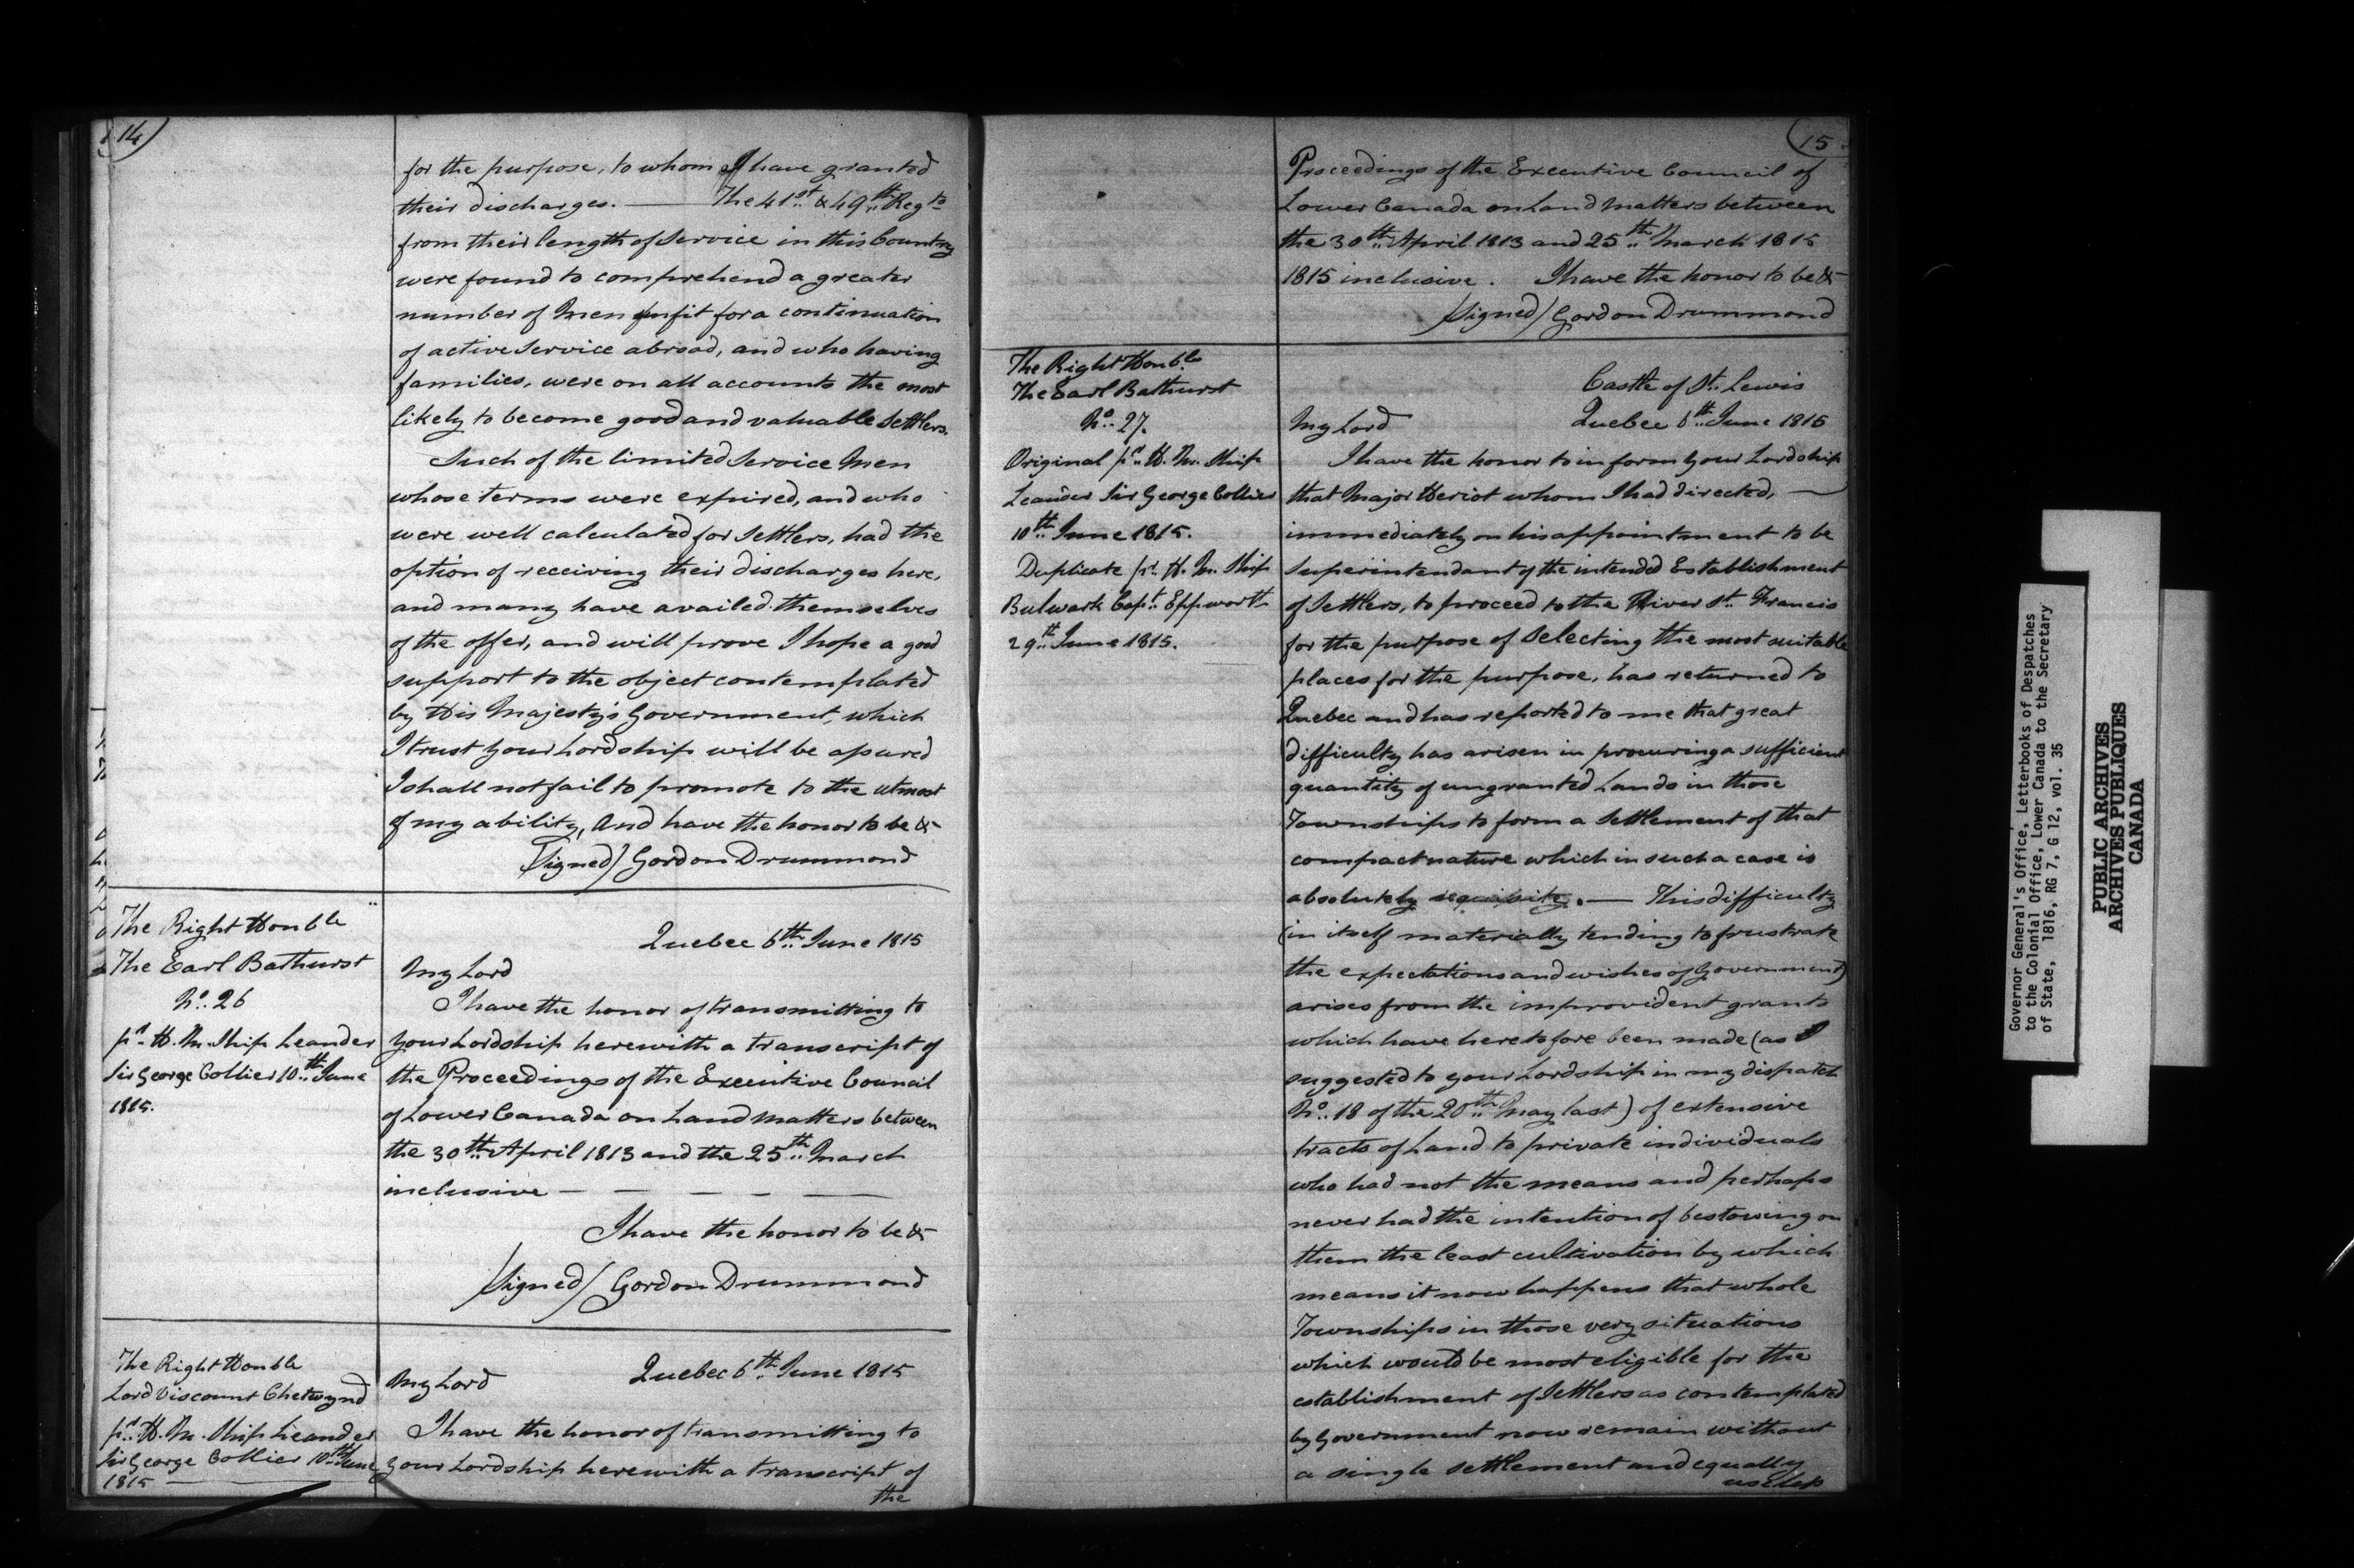 14
for the purpose, to whom I have granted
their discharges. — The 41st & 49th Regts
from their length of Service in this Country
were found to comprehend a greater
number of Men unfit for a continuation
of active Service abroad, and who having
families, were on all accounts the most
likely to become good and valuable Settlers.
Such of the limited Service Men
whose terms were expired, and who
were well calculated for Settlers, had the
option of receiving their discharges here,
and many have availed themselves
of the offer, and will prove I hope a good
support to the object contemplated
by His Majesty's Government, which
I trust Your Lordship will be assured
I shall not fail to promote to the utmost
of my ability, And have the honor to be &c
(Signed) Gordon Drummond
The Right Honble
The Earl Bathurst
No. 26
pr. H. M. Ship Leander
Sir George Collier 10th June
1815.
Quebec 6th June 1815
My Lord
I have the honor of transmitting to
your Lordship herewith a transcript of
the Proceedings of the Executive Council
of Lower Canada on Land Matters between
the 30th April 1813 and the 25th March
inclusive — — — — —
I have the honor to be &c
/Signed/ Gordon Drummond
The Right Honble
Lord Viscount Chetwynd
pr. H. M. Ship Leander
Sir George Collier 10th June
1815 —
Quebec 6th June 1815
My Lord
I have the honor of transmitting to
your Lordship herewith a transcript of
the
15
Proceedings of the Executive Council of
Lower Canada on Land Matters between
the 30th April 1813 and 25th March 1815
1815 inclusive. I have the honor to be &c
/Signed/ Gordon Drummond
The Right Honble
The Earl Bathurst
No. 27.
Original pr. H. M. Ship
Leander Sir George Collier
10th June 1815.
Duplicate pr. H. M. Ship
Bulwark Capt. Eppworth
29th June 1815.
Castle of St. Lewis
Quebec 6th June 1815
My Lord
I have the honor to inform Your Lordship
that Major Heriot whom I had directed, —
immediately on his appointment to be
Superintendant of the intended Establishment
of Settlers, to proceed to the River St. Francis
for the purpose of Selecting the most suitable
places for the purpose, has returned to
Quebec and has reported to me that great
difficulty has arisen in procuring a sufficient
quantity of ungranted Lands in those
Townships to form a Settlement of that
compact nature which in such a case is
absolutely requisite. — This difficulty
(in itself materially tending to frustrate
the expectations and wishes of Government)
arises from the improvident grants
which have heretofore been made (as I
suggested to your Lordship in my dispatch
No. 18 of the 20th May last) of extensive
tracts of Land to private individuals
who had not the means and perhaps
never had the intention of bestowing on
them the least cultivation by which
means it now happens that whole
Townships in those very situations
which would be most eligible for the
establishment of Settlers as contemplated
by Government now remain without
a single settlement and equally
useless
Governor General's Office, Letterbooks of Despatches
to the Colonial Office, Lower Canada to the Secretary
of State, 1816, RG 7, G 12, vol. 35
PUBLIC ARCHIVES
ARCHIVES PUBLIQUES
CANADA